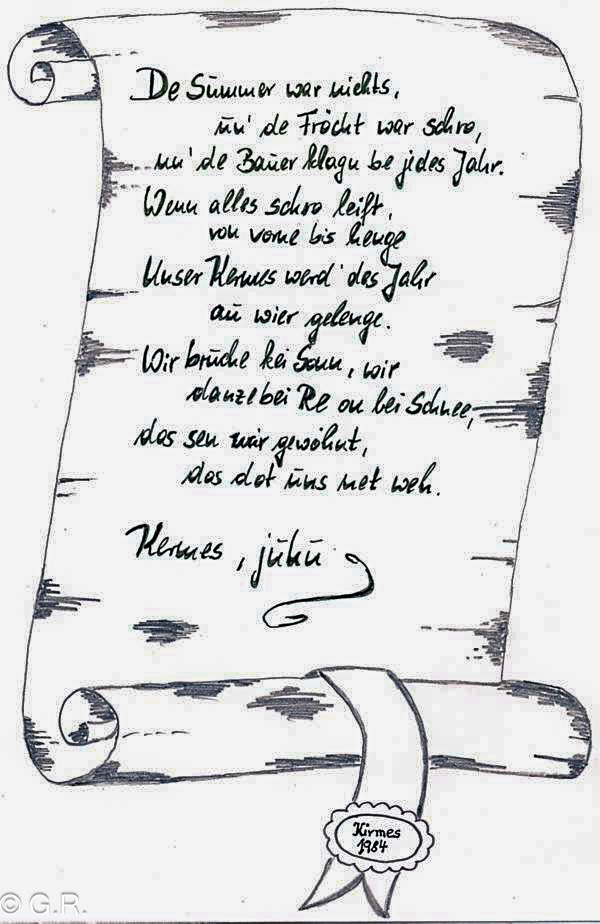 De Summer war nichts,
un' de Fröcht war schro,
un' de Bauer klagn be jedes Jahr.
Wenn alles schro leift,
von vorne bis henge
Unser Kermes werd' des Jahr
au wier gelenge.
Wir brüche kei Sonn, wir
danze bei Re on bei Schnee,
das sen mir gewöhnt,
das dot uns net weh.
Kermes, juhu
Kirmes
1984
© G.R.